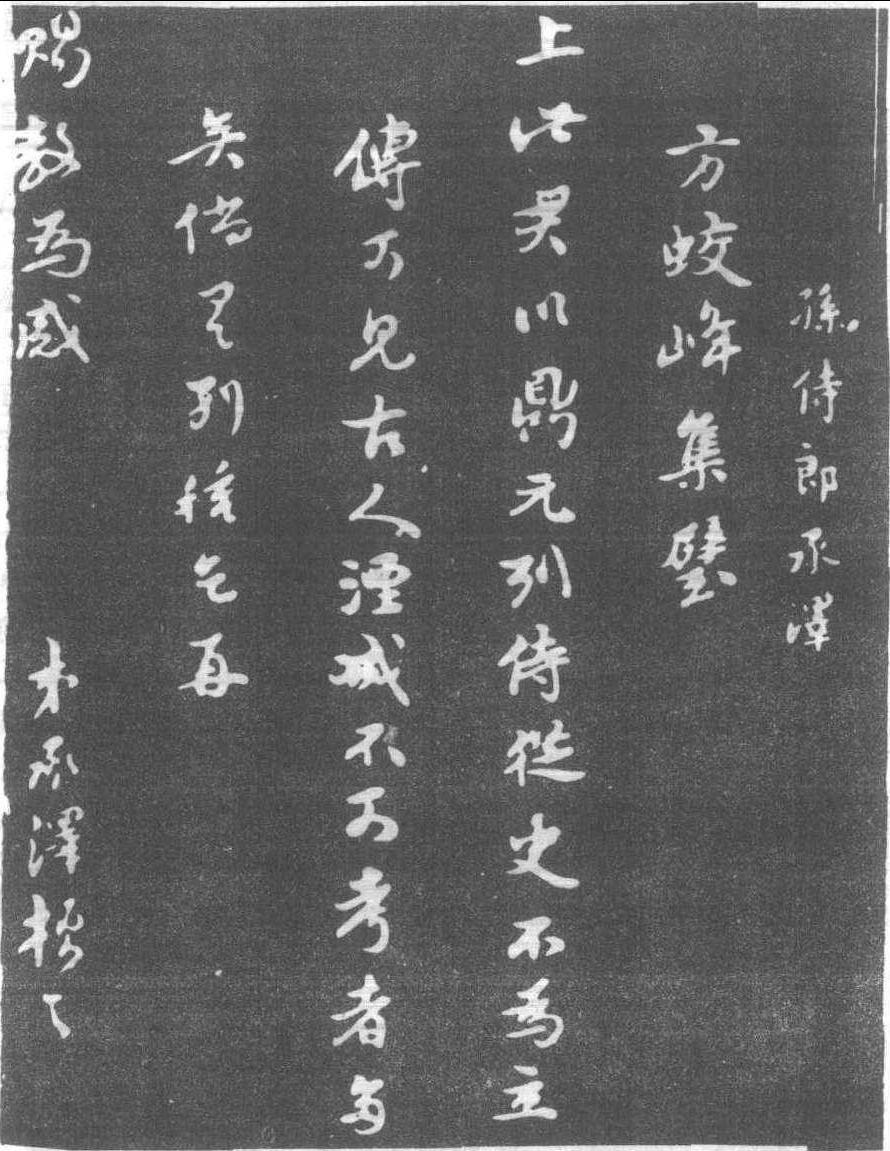 孫侍郎承澤
方蛟峰集璧
上此君以鼎元列侍從史不為立
傳可見古人湮滅不可考者多
矣倘別種乞再
賜教為感
弟承澤